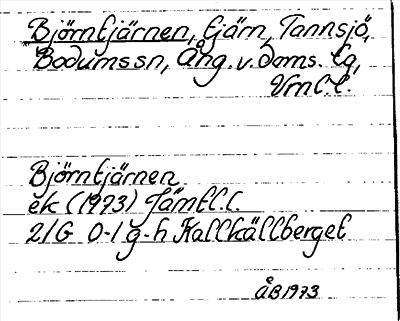 Björntjärnen, tjärn, Tannsjö,
Bodums sn, Ång. v. doms. tg,
Vrnl. l.
Björntjärnen
ek (1973) Jämtl. l.
21G 0-1 g-h Kallkällberget
ÅB 1973